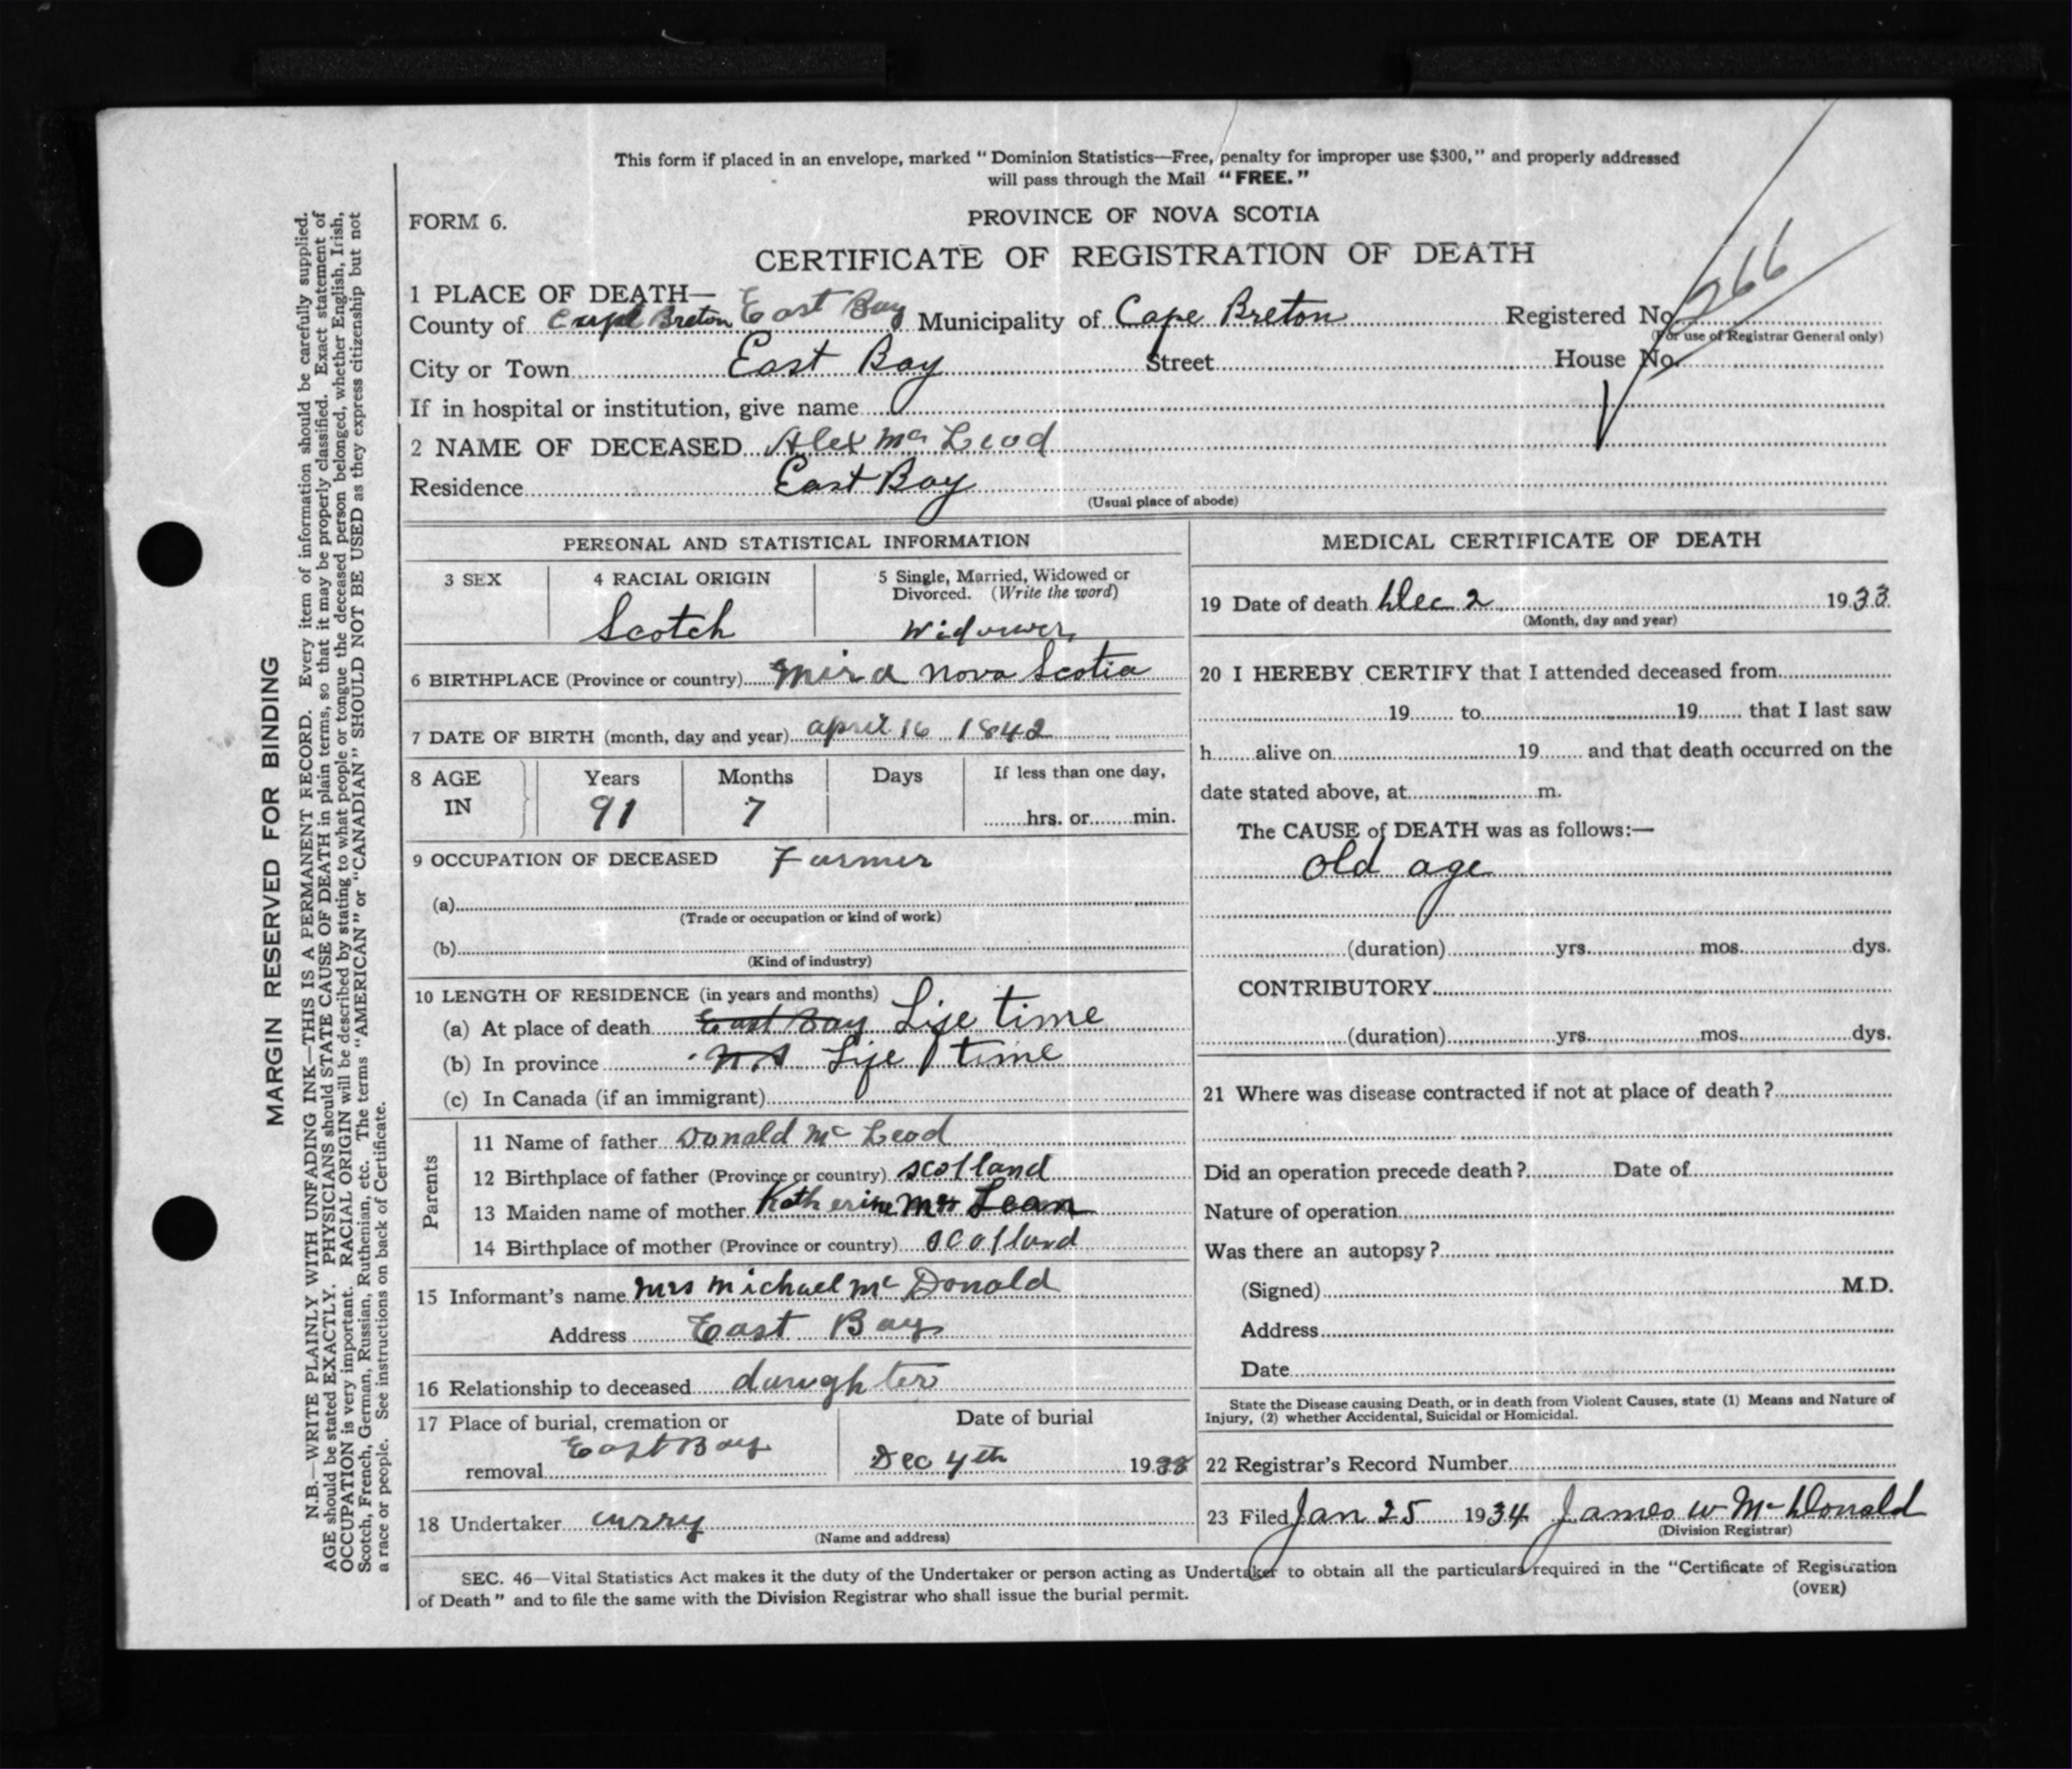 This form if placed in an envelope, marked "Dominion Statistics—Free, penalty for improper use $300," and properly addressed
will pass through the Mail "FREE."
FORM 6.
PROVINCE OF NOVA SCOTIA
CERTIFICATE OF REGISTRATION OF DEATH
1 PLACE OF DEATH—
County of Cape Breton East Bay Municipality of Cape Breton Registered No. 266
(For use of Registrar General only)
City or Town East Bay Street House No.
If in hospital or institution, give name
2 NAME OF DECEASED Alex Mc Leod
Residence East Bay
(Usual place of abode)
PERSONAL AND STATISTICAL INFORMATION
3 SEX
4 RACIAL ORIGIN
Scotch
5 Single, Married, Widowed or
Divorced. (Write the word)
Widower
6 BIRTHPLACE (Province or country) Mira Nova Scotia
7 DATE OF BIRTH (month, day and year) april 16 1842
8 AGE IN
Years Months Days If less than one day,
91 7 hrs. or min.
9 OCCUPATION OF DECEASED Farmer
(a)
(Trade or occupation or kind of work)
(b)
(Kind of industry)
10 LENGTH OF RESIDENCE (in years and months)
(a) At place of death East Bay Life time
(b) In province N S Life time
(c) In Canada (if an immigrant)
Parents
11 Name of father Donald Mc Leod
12 Birthplace of father (Province or country) scotland
13 Maiden name of mother Katherine Mc Lean
14 Birthplace of mother (Province or country) scotland
15 Informant's name Mrs Michael Mc Donald
Address East Bay
16 Relationship to deceased daughter
17 Place of burial, cremation or
removal East Bay
Date of burial
Dec 4th 1933
18 Undertaker curry
(Name and address)
MEDICAL CERTIFICATE OF DEATH
19 Date of death Dec 2 1933
(Month, day and year)
20 I HEREBY CERTIFY that I attended deceased from
19 to 19 that I last saw
h alive on 19 and that death occurred on the
date stated above, at m.
The CAUSE of DEATH was as follows:—
old age
(duration) yrs. mos. dys.
CONTRIBUTORY
(duration) yrs. mos. dys.
21 Where was disease contracted if not at place of death?
Did an operation precede death? Date of
Nature of operation
Was there an autopsy?
(Signed) M.D.
Address
Date
State the Disease causing Death, or in death from Violent Causes, state (1) Means and Nature of
Injury, (2) whether Accidental, Suicidal or Homicidal.
22 Registrar's Record Number
23 Filed Jan 25 1934 James W Mc Donald
(Division Registrar)
SEC. 46—Vital Statistics Act makes it the duty of the Undertaker or person acting as Undertaker to obtain all the particulars required in the "Certificate of Registration
of Death" and to file the same with the Division Registrar who shall issue the burial permit.
(OVER)
MARGIN RESERVED FOR BINDING
N.B.—WRITE PLAINLY WITH UNFADING INK—THIS IS A PERMANENT RECORD. Every item of information should be carefully supplied.
AGE should be stated EXACTLY. PHYSICIANS should STATE CAUSE OF DEATH in plain terms, so that it may be properly classified. Exact statement of
OCCUPATION is very important. RACIAL ORIGIN will be described by stating to what people or tongue the deceased person belonged, whether English, Irish,
Scotch, French, German, Russian, Ruthenian, etc. The terms "AMERICAN" or "CANADIAN" SHOULD NOT BE USED as they express citizenship but not
a race or people. See instructions on back of Certificate.